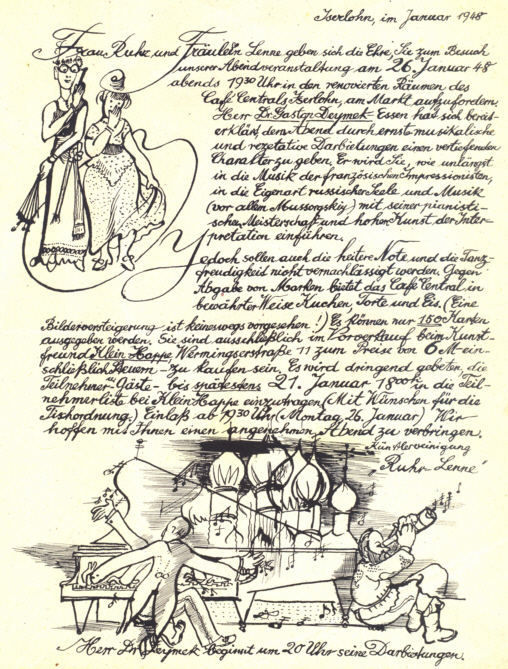 Iserlohn, im Januar 1948
Frau Ruhr und Fräulein Lenne geben sich die Ehre, Sie zum Besuch
unserer Abendveranstaltung am 26. Januar 48
abends 19³⁰ Uhr in den renovierten Räumen des
Café Centrals Iserlohn, am Markt aufzufordern.
Herr Dr. Gaston Deymek - Essen hat sich bereit
erklärt, dem Abend durch ernst-musikalische
und rezetative Darbietungen einen vertiefenden
Charakter zu geben. Er wird Sie, wie unlängst
in die Musik der französischen Impressionisten,
in die Eigenart russischer Seele und Musik
(vor allem Mussorgskij) mit seiner pianisti-
schen Meisterschaft und hohen Kunst der Inter-
pretation einführen.
Jedoch sollen auch die heitere Note und die Tanz-
freudigkeit nicht vernachlässigt werden. Gegen
Abgabe von Marken bietet das Café Central in
bewährter Weise Kuchen, Torte und Eis. (Eine
Bilderversteigerung ist keineswegs vorgesehen!) Es können nur 150 Karten
ausgegeben werden. Sie sind ausschließlich im Vorverkauf beim Kunst-
freund Klein Happe Wermingserstraße 11 zum Preise von 6 M - ein-
schließlich Steuern - zu kaufen sein. Es wird dringend gebeten, die
Teilnehmer - Gäste - bis spätestens 21. Januar 18⁰⁰ Uhr in die Teil-
nehmerliste bei Klein Happe einzutragen (Mit Wünschen für die
Tischordnung.) Einlaß ab 19³⁰ Uhr (Montag, 26. Januar) Wir
hoffen mit Ihnen einen angenehmen Abend zu verbringen.
Künstlervereinigung
"Ruhr-Lenne"
Herr Dr. Deymek beginnt um 20 Uhr seine Darbietungen.